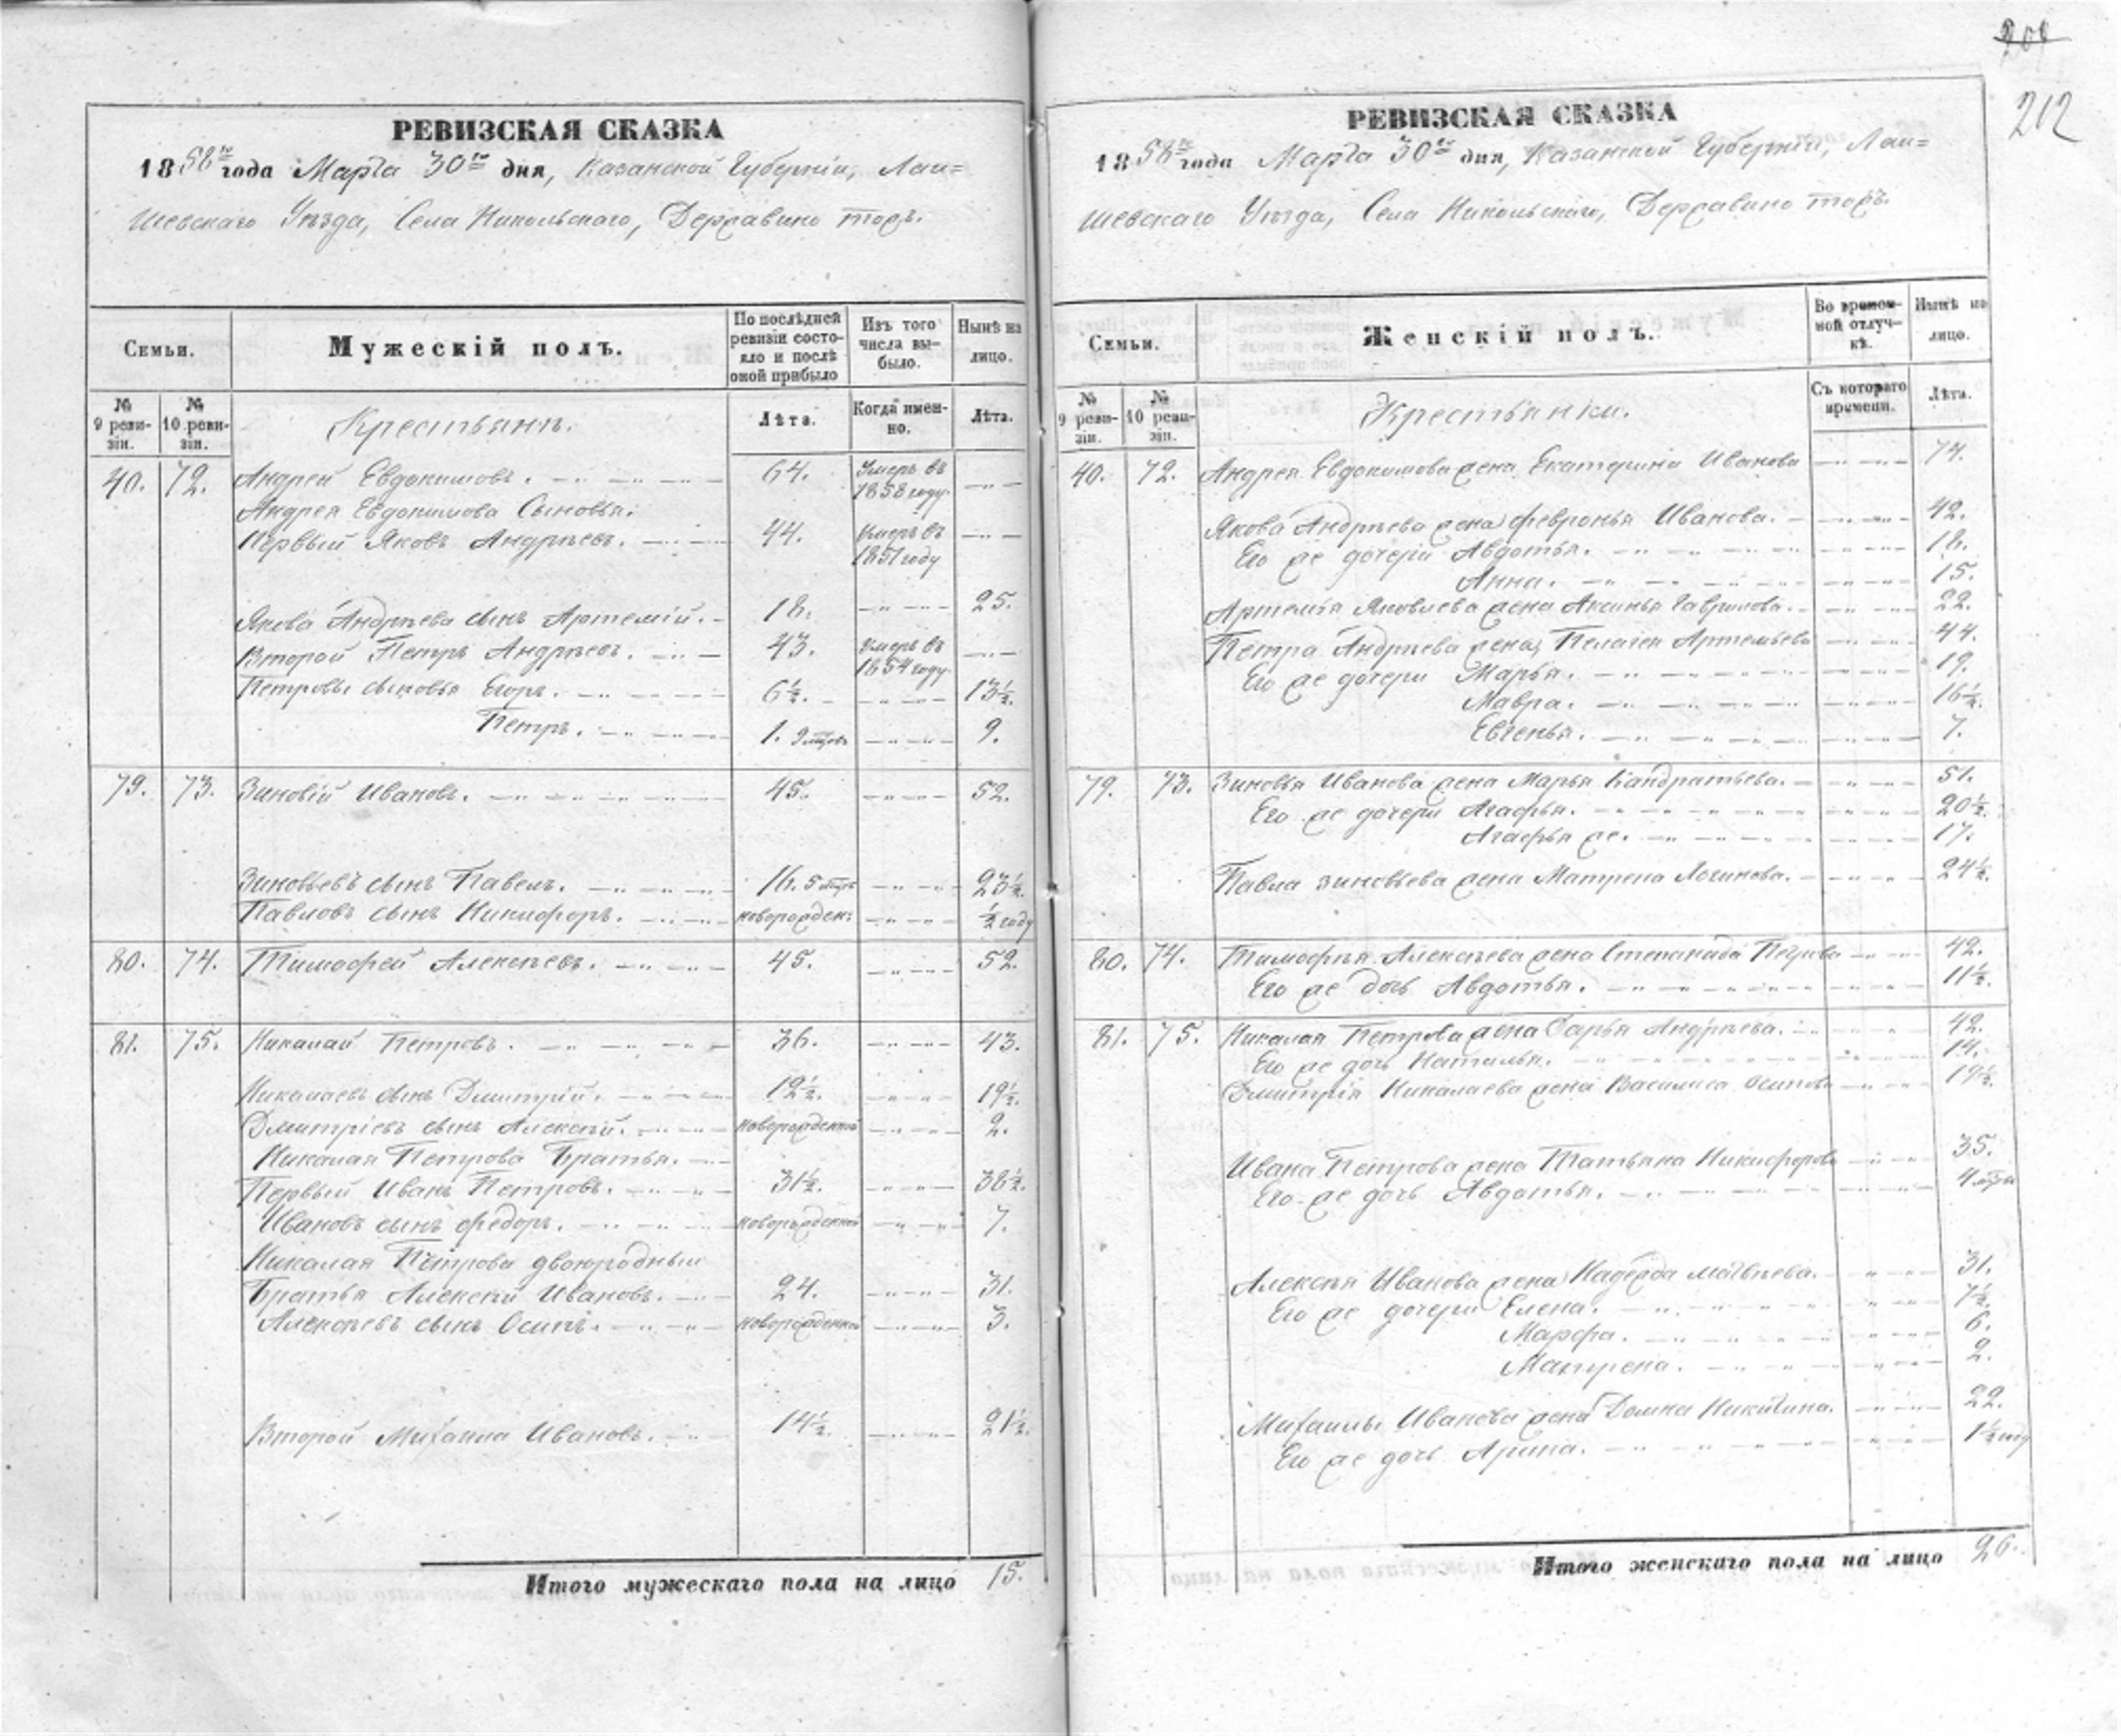 РЕВИЗСКАЯ СКАЗКА
1858го года Марта 30го дня, Казанской Губерніи, Лаи=
шевскаго Уѣзда, Села Никольскаго, Державино тожъ.
Семьи.
Мужескій полъ.
По послѣдней ревизіи состояло и послѣ оной прибыло
Изъ того числа выбыло.
Нынѣ на лицо.
№ 9 ревизіи.
№ 10 ревизіи.
Крестьянъ.
Лѣта.
Когда именно.
Лѣта.
40. 72. Андрей Евдокимовъ. 64. Умеръ въ 1858 году.
Андрея Евдокимова Сыновья:
Первый Яковъ Андрѣевъ. 44. Умеръ въ 1851 году
Якова Андрѣева сынъ Артемій. 18. 25.
Второй Петръ Андрѣевъ. 43. Умеръ въ 1854 году.
Петровы сыновья Егоръ. 6½. 13½.
Петръ. 1. 9 мцовъ 9.
79. 73. Зиновій Ивановъ. 45. 52.
Зиновьевъ сынъ Павелъ. 16. 5 мцъ 23½.
Павловъ сынъ Никифоръ. новорожден: ½ году
80. 74. Тимофей Алексѣевъ. 45. 52.
81. 75. Николай Петровъ. 36. 43.
Николаевъ сынъ Дмитрій. 12½. 19½.
Дмитріевъ сынъ Алексѣй. новорожденный 2.
Николая Петрова Братья.
Первый Иванъ Петровъ. 31½. 38½.
Ивановъ сынъ Федоръ. новорожденной 7.
Николая Петрова двоюродныи
Братья Алексѣй Ивановъ. 24. 31.
Алексѣевъ сынъ Осипъ. новорожденной 3.
Второй Михаила Ивановъ. 14½. 21½.
Итого мужескаго пола на лицо 15.
212
РЕВИЗСКАЯ СКАЗКА
1858го года Марта 30го дня, Казанской Губерніи, Лаи=
шевскаго Уѣзда, Села Никольскаго, Державино тожъ.
Семьи.
Женскій полъ.
Во временной отлучкѣ.
Нынѣ на лицо.
№ 9 ревизіи.
№ 10 ревизіи.
Крестьянки.
Съ котораго времени.
Лѣта.
40. 72. Андрея Евдокимова жена Екатерина Иванова 74.
Якова Андрѣева жена Февронья Иванова. 42.
Его же дочери Авдотья. 18.
Анна. 15.
Артемья Яковлева жена Аксинья Гаврилова. 22.
Петра Андрѣева жена Пелагея Артемьева 44.
Его же дочери Марья. 19.
Мавра. 16½.
Евгенья. 7.
79. 73. Зиновья Иванова жена Марья Кандратьева. 51.
Его же дочери Агафья. 20½.
Агафья же. 17.
Павла Зиновьева жена Матрена Логинова. 24½.
80. 74. Тимофея Алексѣева жена Степанида Петрова 42.
Его же дочь Авдотья. 11½.
81. 75. Николая Петрова жена Дарья Андрѣева. 42.
Его же дочь Наталья. 14.
Дмитрія Николаева жена Василиса Осипова 19½.
Ивана Петрова жена Татьяна Никифорова 35.
Его же дочь Авдотья. 4 мцы
Алексѣя Иванова жена Надежда Матвѣева. 31.
Его же дочери Елена. 7½.
Марфа. 6.
Матрена. 2.
Михаилы Иванова жена Домна Никитина. 22.
Его же дочь Арина. 1½ году
Итого женскаго пола на лицо 26.